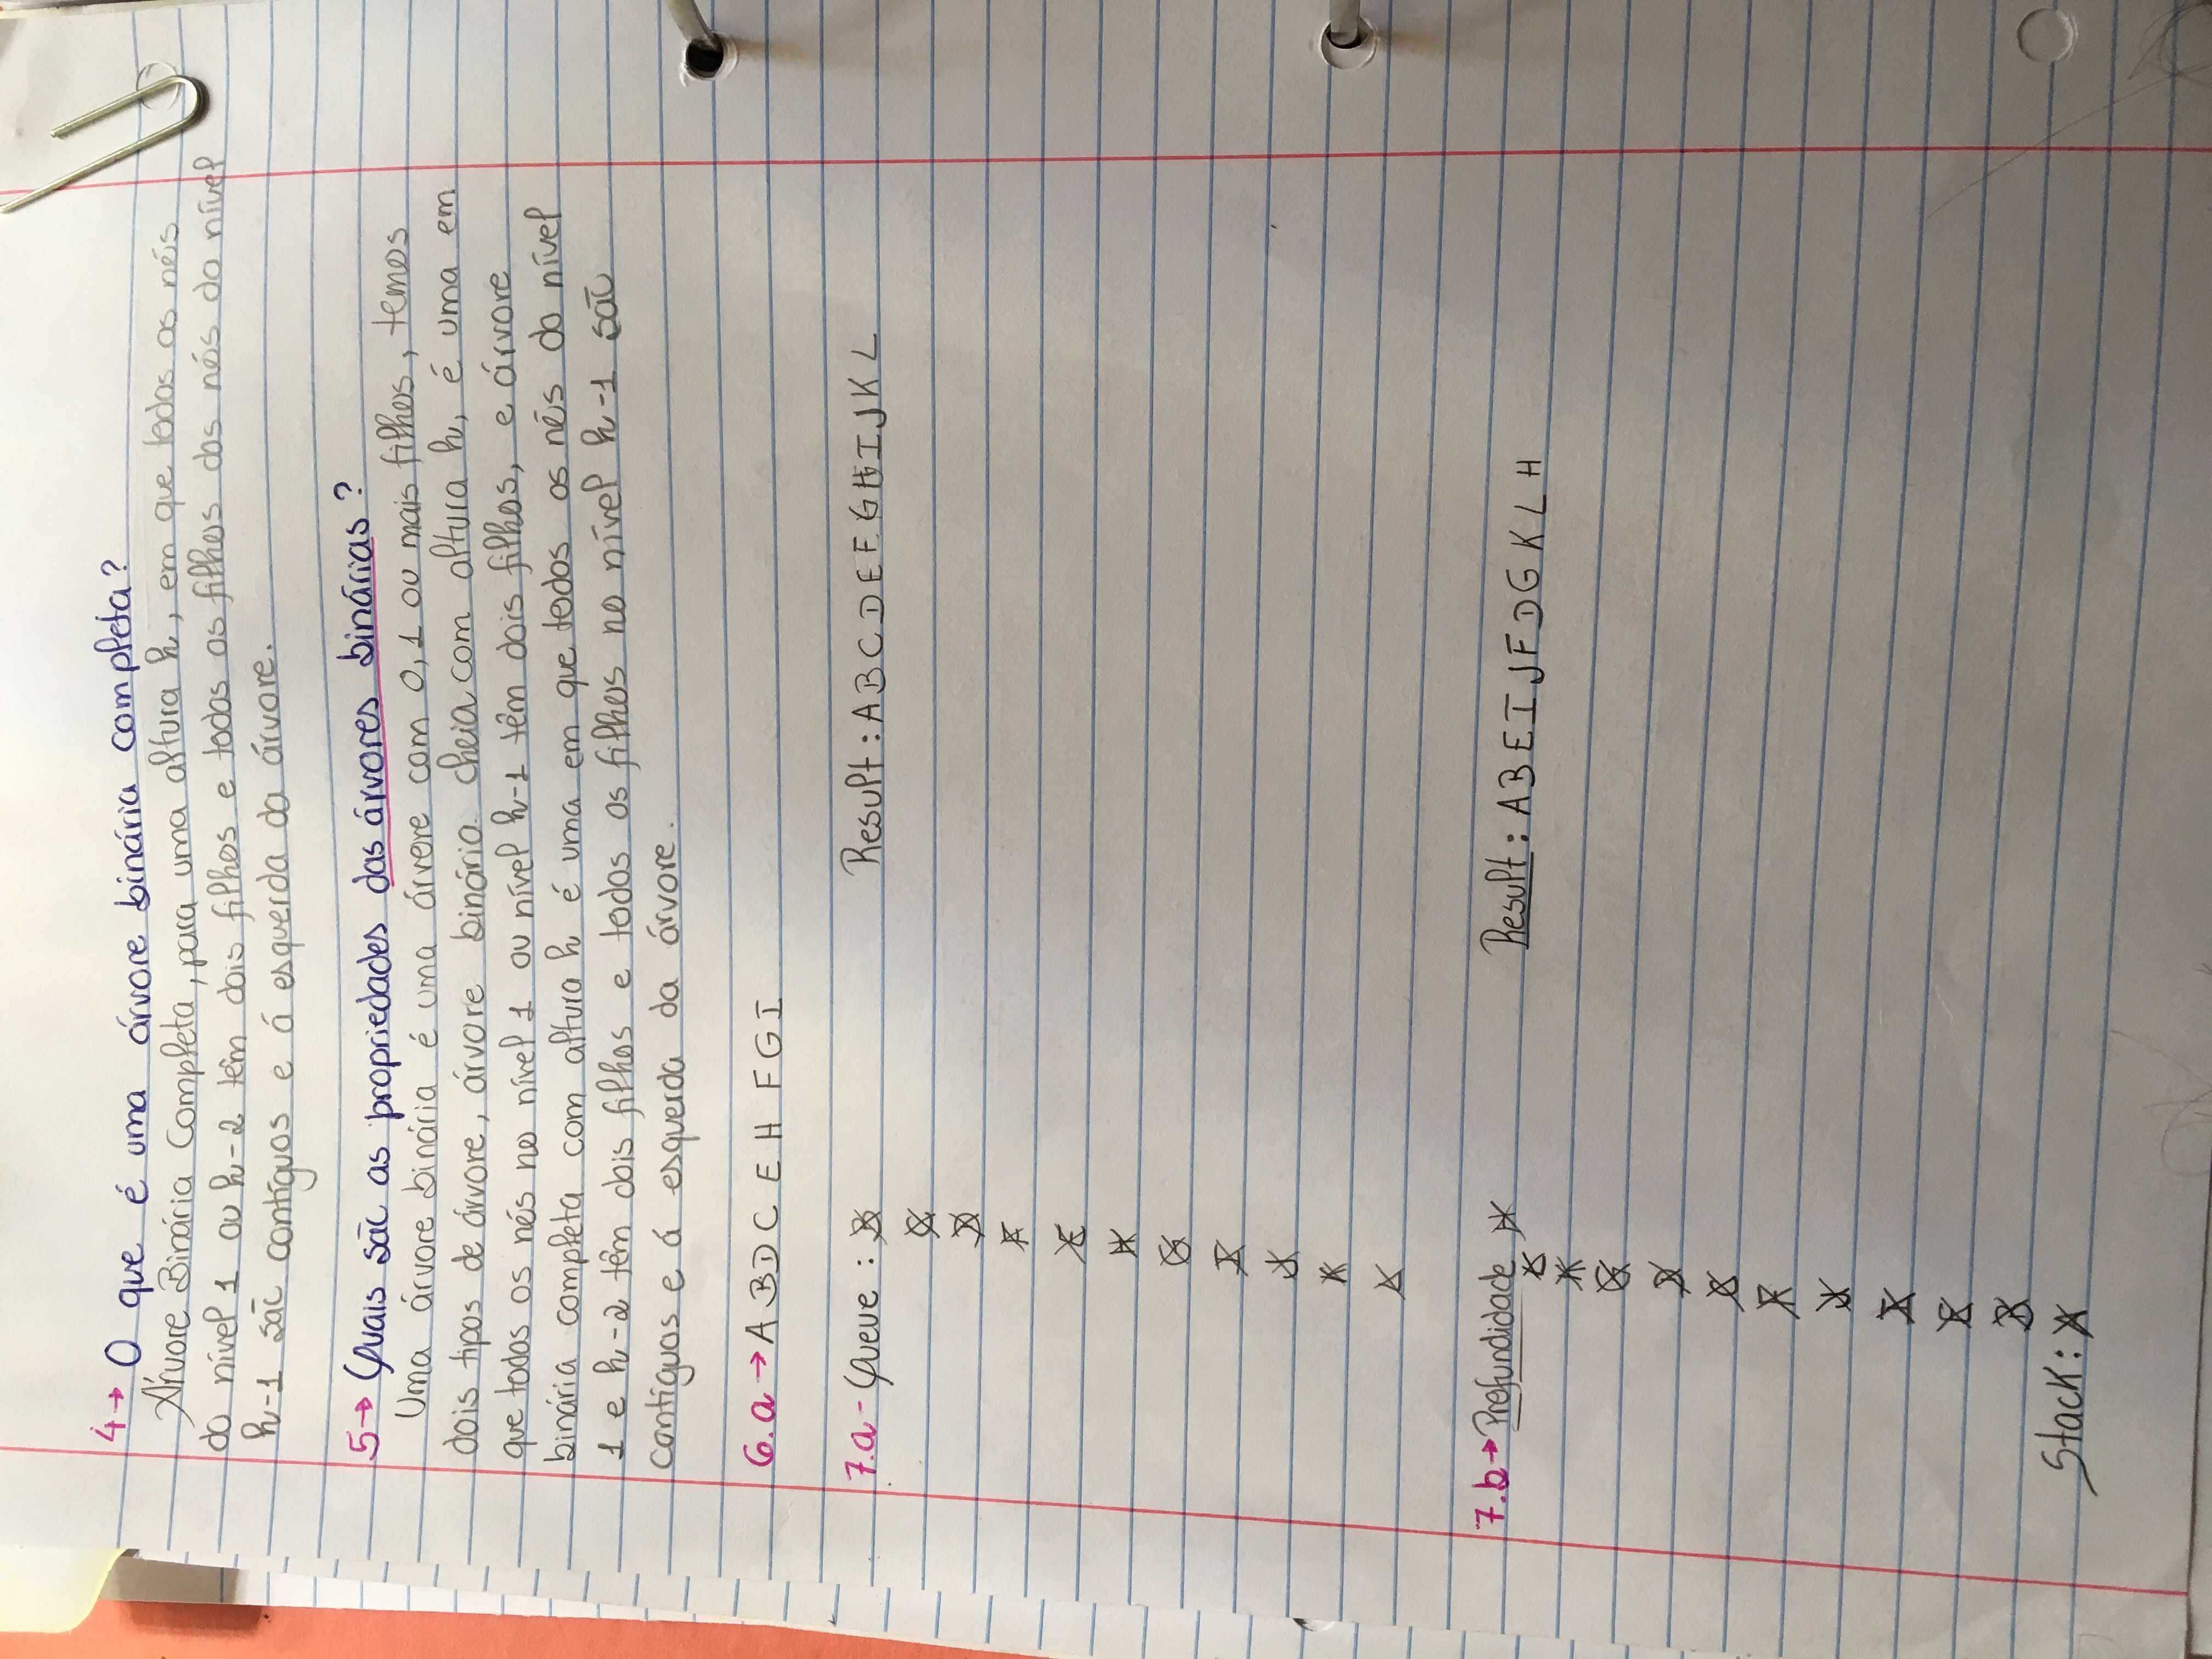 4→ O que é uma árvore binária completa?
Árvore Binária Completa, para uma altura h, em que todos os nós
do nível 1 ou h-2 têm dois filhos e todos os filhos dos nós do nível
h-1 são contíguos e á esquerda da árvore.
5→ Quais são as propriedades das árvores binárias?
Uma árvore binária é uma árvore com 0,1 ou mais filhos, temos
dois tipos de árvore, árvore binária cheia com altura h, é uma em
que todos os nós no nível 1 ou nível h-1 têm dois filhos, e árvore
binária completa com altura h é uma em que todos os nós do nível
1 e h-2 têm dois filhos e todos os filhos no nível h-1 são
contíguos e á esquerda da árvore.
6.a→ A B D C E H F G I
7.a- Queue : B Result : A B C D E F G H I J K L
C
D
F
E
H
G
I
J
K
L
7.b→ Profundidade H Result : A B E I J F D G K L H
L
K
G
D
C
F
J
I
E
B
Stack : A